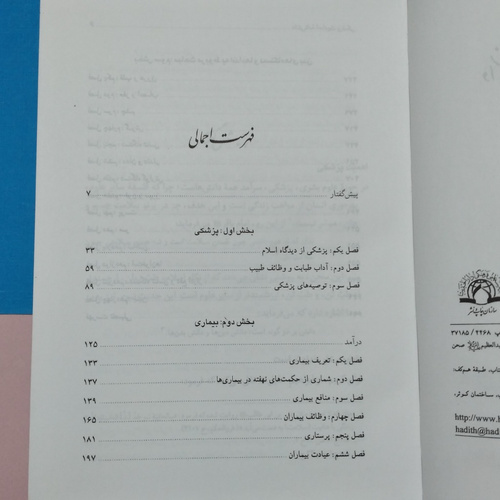 فهرست اجمالی
پیش‌گفتار ۷
بخش اول: پزشکی
فصل یکم: پزشکی از دیدگاه اسلام ۳۳
فصل دوم: آداب طبابت و وظائف طبیب ۵۹
فصل سوم: توصیه‌های پزشکی ۸۹
بخش دوم: بیماری
درآمد ۱۲۵
فصل یکم: تعریف بیماری ۱۳۳
فصل دوم: شماری از حکمت‌های نهفته در بیماری‌ها ۱۳۷
فصل سوم: منافع بیماری ۱۳۹
فصل چهارم: وظائف بیماران ۱۶۵
فصل پنجم: پرستاری ۱۸۱
فصل ششم: عیادت بیماران ۱۹۷
۳۷۱۸۵ / ۲۲۶۸
صحن
طبقهٔ همکف
ساختمان کوثر،
http://www.h
hadith@had